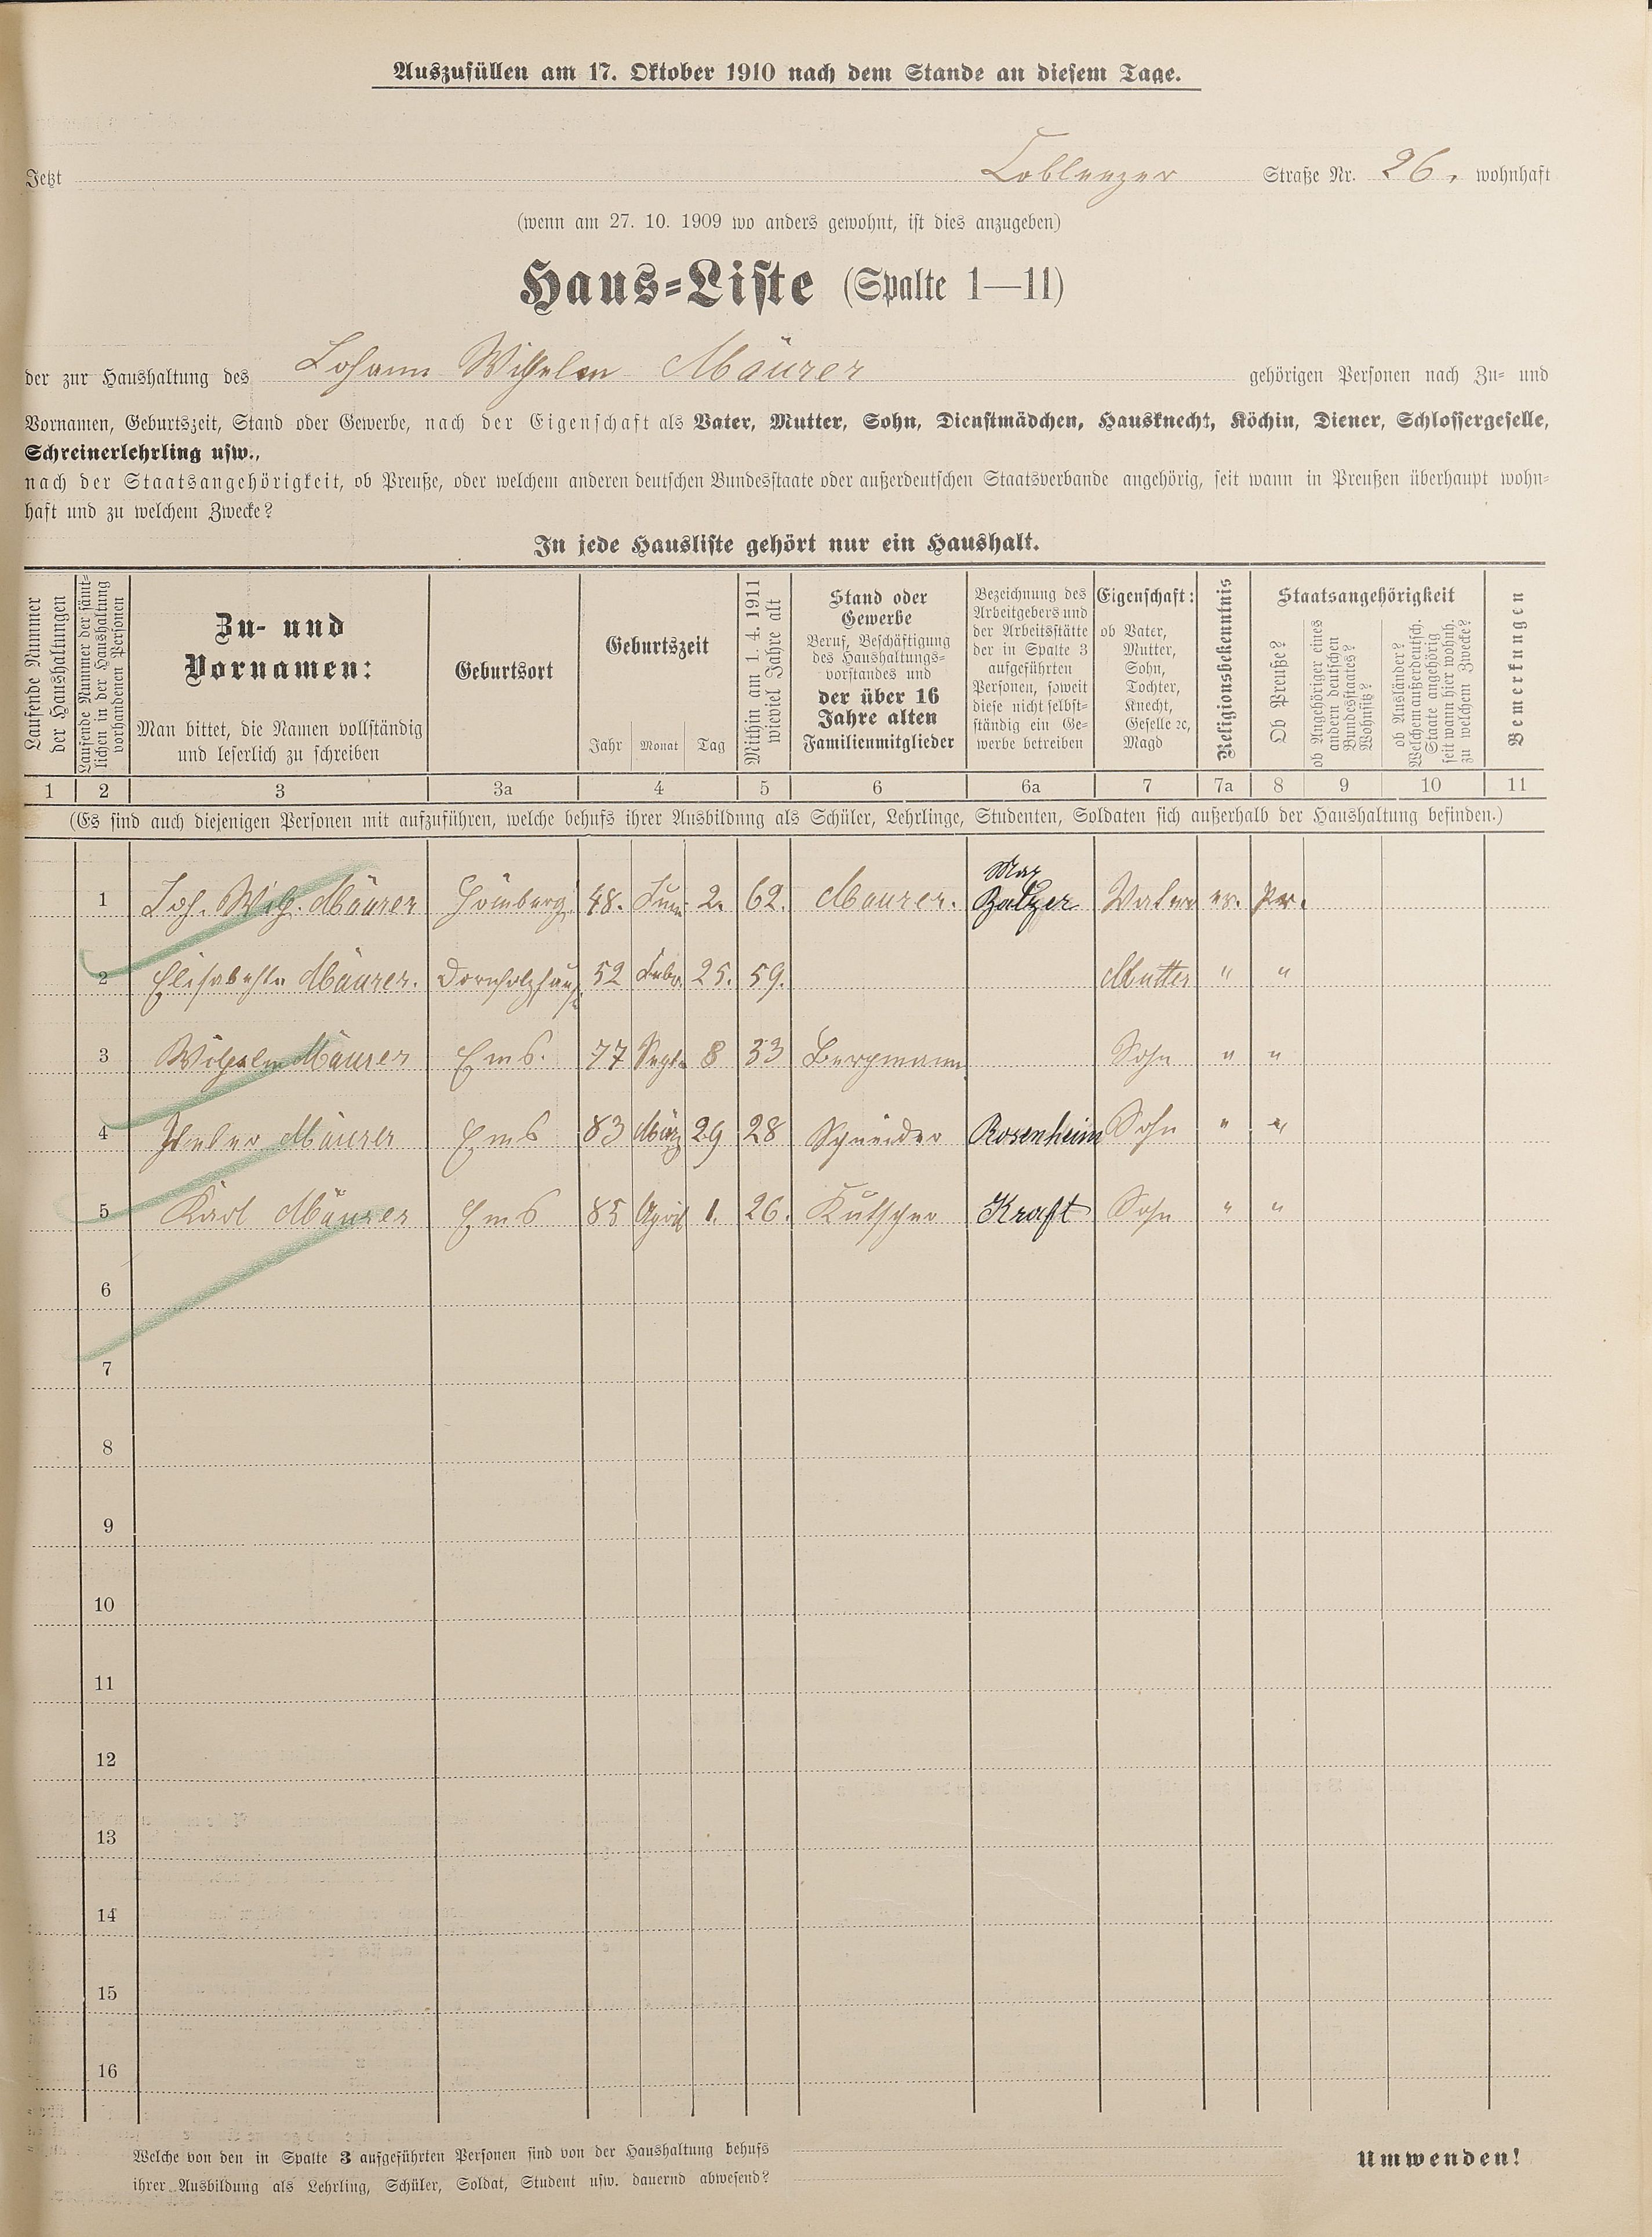 Auszufüllen am 17. Oktober 1910 nach dem Stande an diesem Tage.
Jetzt Coblenzer Straße Nr. 26. wohnhaft
(wenn am 27. 10. 1909 wo anders gewohnt, ist dies anzugeben)
Haus-Liste (Spalte 1—11)
der zur Haushaltung des Johann Wilhelm Mäurer gehörigen Personen nach Zu- und
Vornamen, Geburtszeit, Stand oder Gewerbe, nach der Eigenschaft als Vater, Mutter, Sohn, Dienstmädchen, Hausknecht, Köchin, Diener, Schlossergeselle,
Schreinerlehrling usw.,
nach der Staatsangehörigkeit, ob Preuße, oder welchem anderen deutschen Bundesstaate oder außerdeutschen Staatsverbande angehörig, seit wann in Preußen überhaupt wohn-
haft und zu welchem Zwecke?
In jede Hausliste gehört nur ein Haushalt.
Laufende Nummer
der Haushaltungen
Laufende Nummer der sämt-
lichen in der Haushaltung
vorhandenen Personen
Zu- und
Vornamen:
Man bittet, die Namen vollständig
und leserlich zu schreiben
Geburtsort
Geburtszeit
Jahr Monat Tag
Mithin am 1. 4. 1911
wieviel Jahre alt
Stand oder
Gewerbe
Beruf, Beschäftigung
des Haushaltungs-
vorstandes und
der über 16
Jahre alten
Familienmitglieder
Bezeichnung des
Arbeitgebers und
der Arbeitsstätte
der in Spalte 3
aufgeführten
Personen, soweit
diese nicht selbst-
ständig ein Ge-
werbe betreiben
Eigenschaft:
ob Vater,
Mutter,
Sohn,
Tochter,
Knecht,
Geselle ꝛc,
Magd
Religionsbekenntnis
Staatsangehörigkeit
Ob Preuße?
ob Angehöriger eines
andern deutschen
Bundesstaates?
Wohnsitz?
ob Ausländer?
Welchem außerdeutsch.
Staate angehörig
seit wann hier wohnh.
zu welchem Zwecke?
Bemerkungen
1 2 3 3a 4 5 6 6a 7 7a 8 9 10 11
(Es sind auch diejenigen Personen mit aufzuführen, welche behufs ihrer Ausbildung als Schüler, Lehrlinge, Studenten, Soldaten sich außerhalb der Haushaltung befinden.)
1 Joh. Wilh. Mäurer Hömberg 48. Juni 2. 62. Maurer. Max Balzer Vater ev. Pr.
2 Elisabethe Mäurer. Dornholzhaus. 52 Febr. 25. 59. Mutter " "
3 Wilhelm Mäurer Ems. 77 Sept. 8 33 Bergmann Sohn " "
4 Mäurer Ems 83 März 29 28 Schneider Rosenheim Sohn " "
5 Karl Mäurer Ems 85 April 1. 26. Kutscher Kraft Sohn " "
6
7
8
9
10
11
12
13
14
15
16
Welche von den in Spalte 3 aufgeführten Personen sind von der Haushaltung behufs
ihrer Ausbildung als Lehrling, Schüler, Soldat, Student usw. dauernd abwesend?
Umwenden!